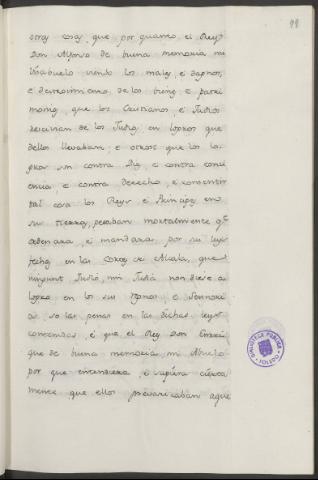 99
otros cosas, que por quanto el Rey
Don Alfonso de buena memoria mi
Visabuelo viendo los males, é daños,
é destroimiento de los bienes é patri
monios, que los Christianos, é Judios
rescivian de los Judios en logros que
dellos llevaban, é otrosi que los lo
gros son contra Dios é contra conci
encia, é contra derecho, é consentir
tal cosa los Reyes é Principes en
su tierra, pecaban mortalmente qe.
ordenara, é mandara, por su ley
fecha en las Cortes de Alcala, que
ningunt Judio, nin Judia non diese á
logro en los sus Regnos, é Sennorios
so las penas en las dichas leyes
contenidas, é que el Rey Don Enrri
que de buena memoria, mi Abuelo
por que entendiera, é sopiera cierta
mente que ellos prevaricaban aque
BIBLIOTECA PUBLICA
TOLEDO